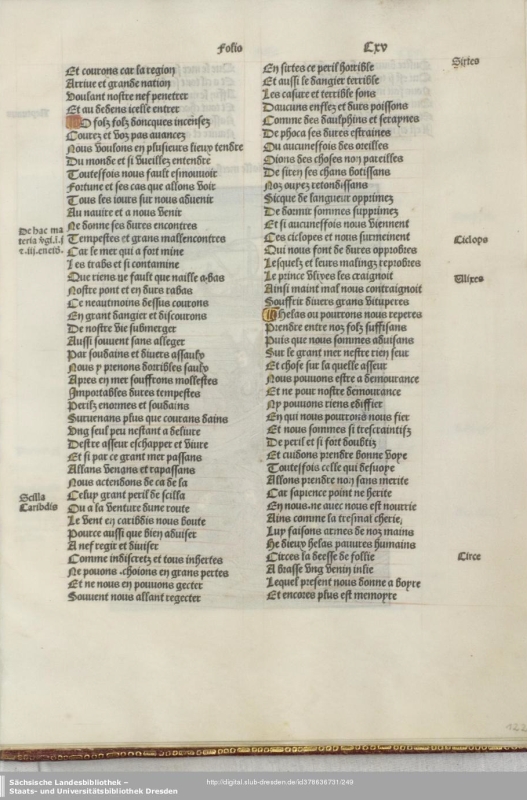 Folio
Cxv
Et courons car la region
Arriue et grande nation
Voulant nostre nef penetrer
Et au dedens icelle entrer
O folz folz doncques incensez
Courez et voz pas auancez
Nous voulons en plusieurs lieux tendre
Du monde et si vueillez entendre
Toutesfois nous fault esmouuoir
Fortune et ses cas que allons voir
Tous les iours sur nous aduenir
Au nauire et a nous venir
Ne donne ses dures encontres
Tempestes et grans malencontres
Car le mer qui a fort mine
Les trabs et si contamine
Que riens ne fault que naille abas
Nostre pont et en durs rabas
Ce neautmoins dessus courons
En grant dangier et discourons
De nostre vie submerger
Aussi souuent sans alleger
Par soudains et diuers assaulx
Nous y prenons horribles saulx
Apres en mer souffrons mollestes
Importables dures tempestes
Perilz enormes et soudains
Suruenans plus que courans dains
Vng seul peu nestant a deliure
Destre asseur eschapper et viure
Et si par ce grant mer passans
Allans venans et rapassans
Nous actendons de ca de la
Celuy grant peril de scilla
Ou a la venture dune route
Le vent en caribdis nous boute
Pource aussi que bien aduiser
A nef regir et diuiser
Comme indiscretz et tous inhertes
Ne pouons. choions en grans pertes
Et ne nous en pouuons gecter
Souuent nous allant regecter
De hac ma
teria
t .iii. eneid.
Scilla
Caribdis
En sirtes ce peril horrible
Et aussi le dangier terrible
Les casure et terrible sons
Daucuns enflez et durs poissons
Comme des daulphins etseraynes
De phoca ses dures estraines
Ou aucunesfois des oreilles
Oions des choses non pareilles
De siren ses chans botissans
Noz ouyez retondissans
Sicque de langueur opprimez
De dormir sommes supprimez
Et si aucunesfois nous viennent
Ces ciclopes et nous surmeinent
Qui nous font de dures opprobres
Lesquelz et leurs malingz reprobres
Le prince Ulixes les craignoit
Ainsi maint mal nous contraignoit
Souffrir diuers grans vituperes
Helas ou pourrons nous reperes
Prendre entre noz folz suffisans
Puis que nous sommes aduisans
Sur le grant mer nestre rien seur
Et chose sur la quelle asseur
Nous pouuons estre a demourance
Et ne pour nostre demourance
Ny pouuons riens ediffier
En qui nous pourrons nous fier
Et nous sommes si trescraintifz
De peril et si fort doubtiz
Et cuidons prendre bonne voye
Toutesfois celle qui desuoye
Allons prendre non sans merite
Car sapience point ne herite
En nous. ne auec nous est nourrie
Ains comme la tresinal cherie,
Luy faisons armes de noz mains
He dieux helas pauures humains
Circes la deesse de follie
A brasse vng venin in lie
Lequel present nous donne a boyre
Et encores plus est memoyre
Sirtes
Ciclops
Ulixes
Circe
122
Sächsische Landesbibliothek –
Staats- und Universitätsbibliothek Dresden
http://digital.slub-dresden.de/id378636731/249